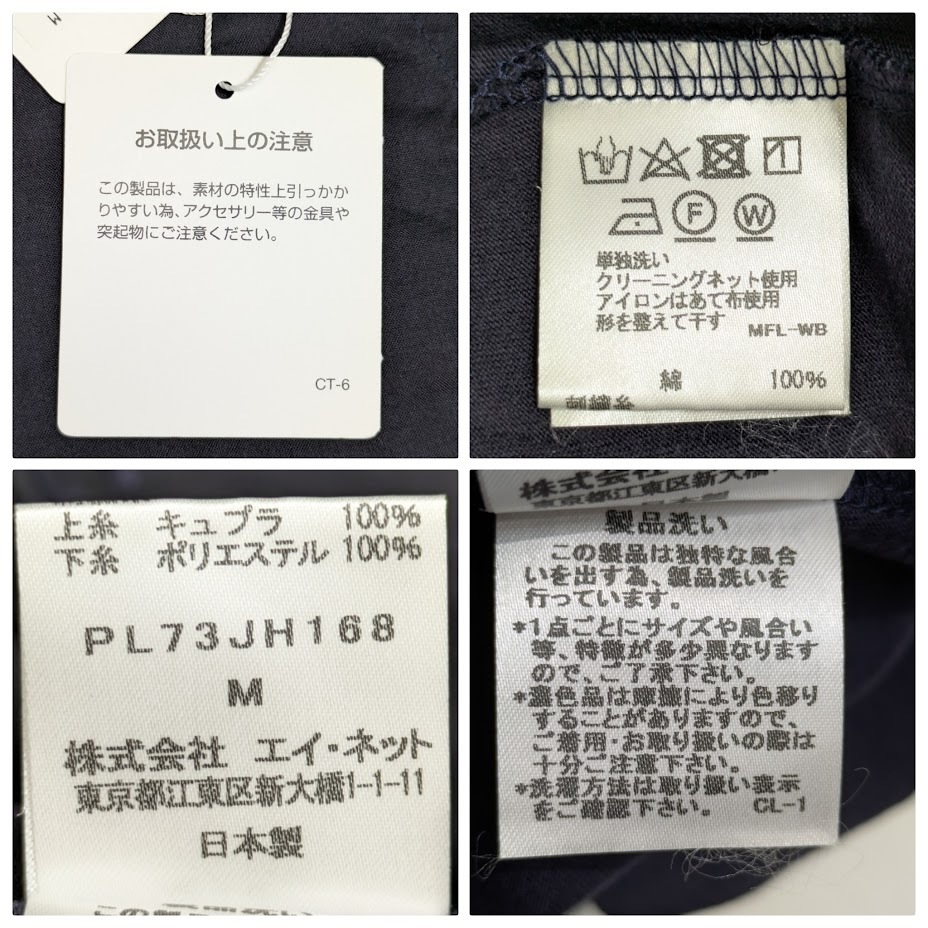 M
お取扱い上の注意
この製品は、素材の特性上引っかか
りやすい為、アクセサリー等の金具や
突起物にご注意ください。
CT-6
1
F W
単独洗い
クリーニングネット使用
アイロンはあて布使用
形を整えて干す
MFL-WB
綿 100%
刺繍糸
上糸 キュプラ 100%
下糸 ポリエステル 100%
PL73JH168
M
株式会社 エイ・ネット
東京都江東区新大橋1-1-11
日本製
株式会社
東京都江東区新大橋1
日本製
製品洗い
この製品は独特な風合
いを出す為、製品洗いを
行っています。
*1点ごとにサイズや風合い
等、特徴が多少異なります
ので、ご了承下さい。
*濃色品は摩擦により色移り
することがありますので、
ご着用・お取り扱いの際は
十分ご注意下さい。
*洗濯方法は取り扱い表示
をご確認下さい。 CL-1